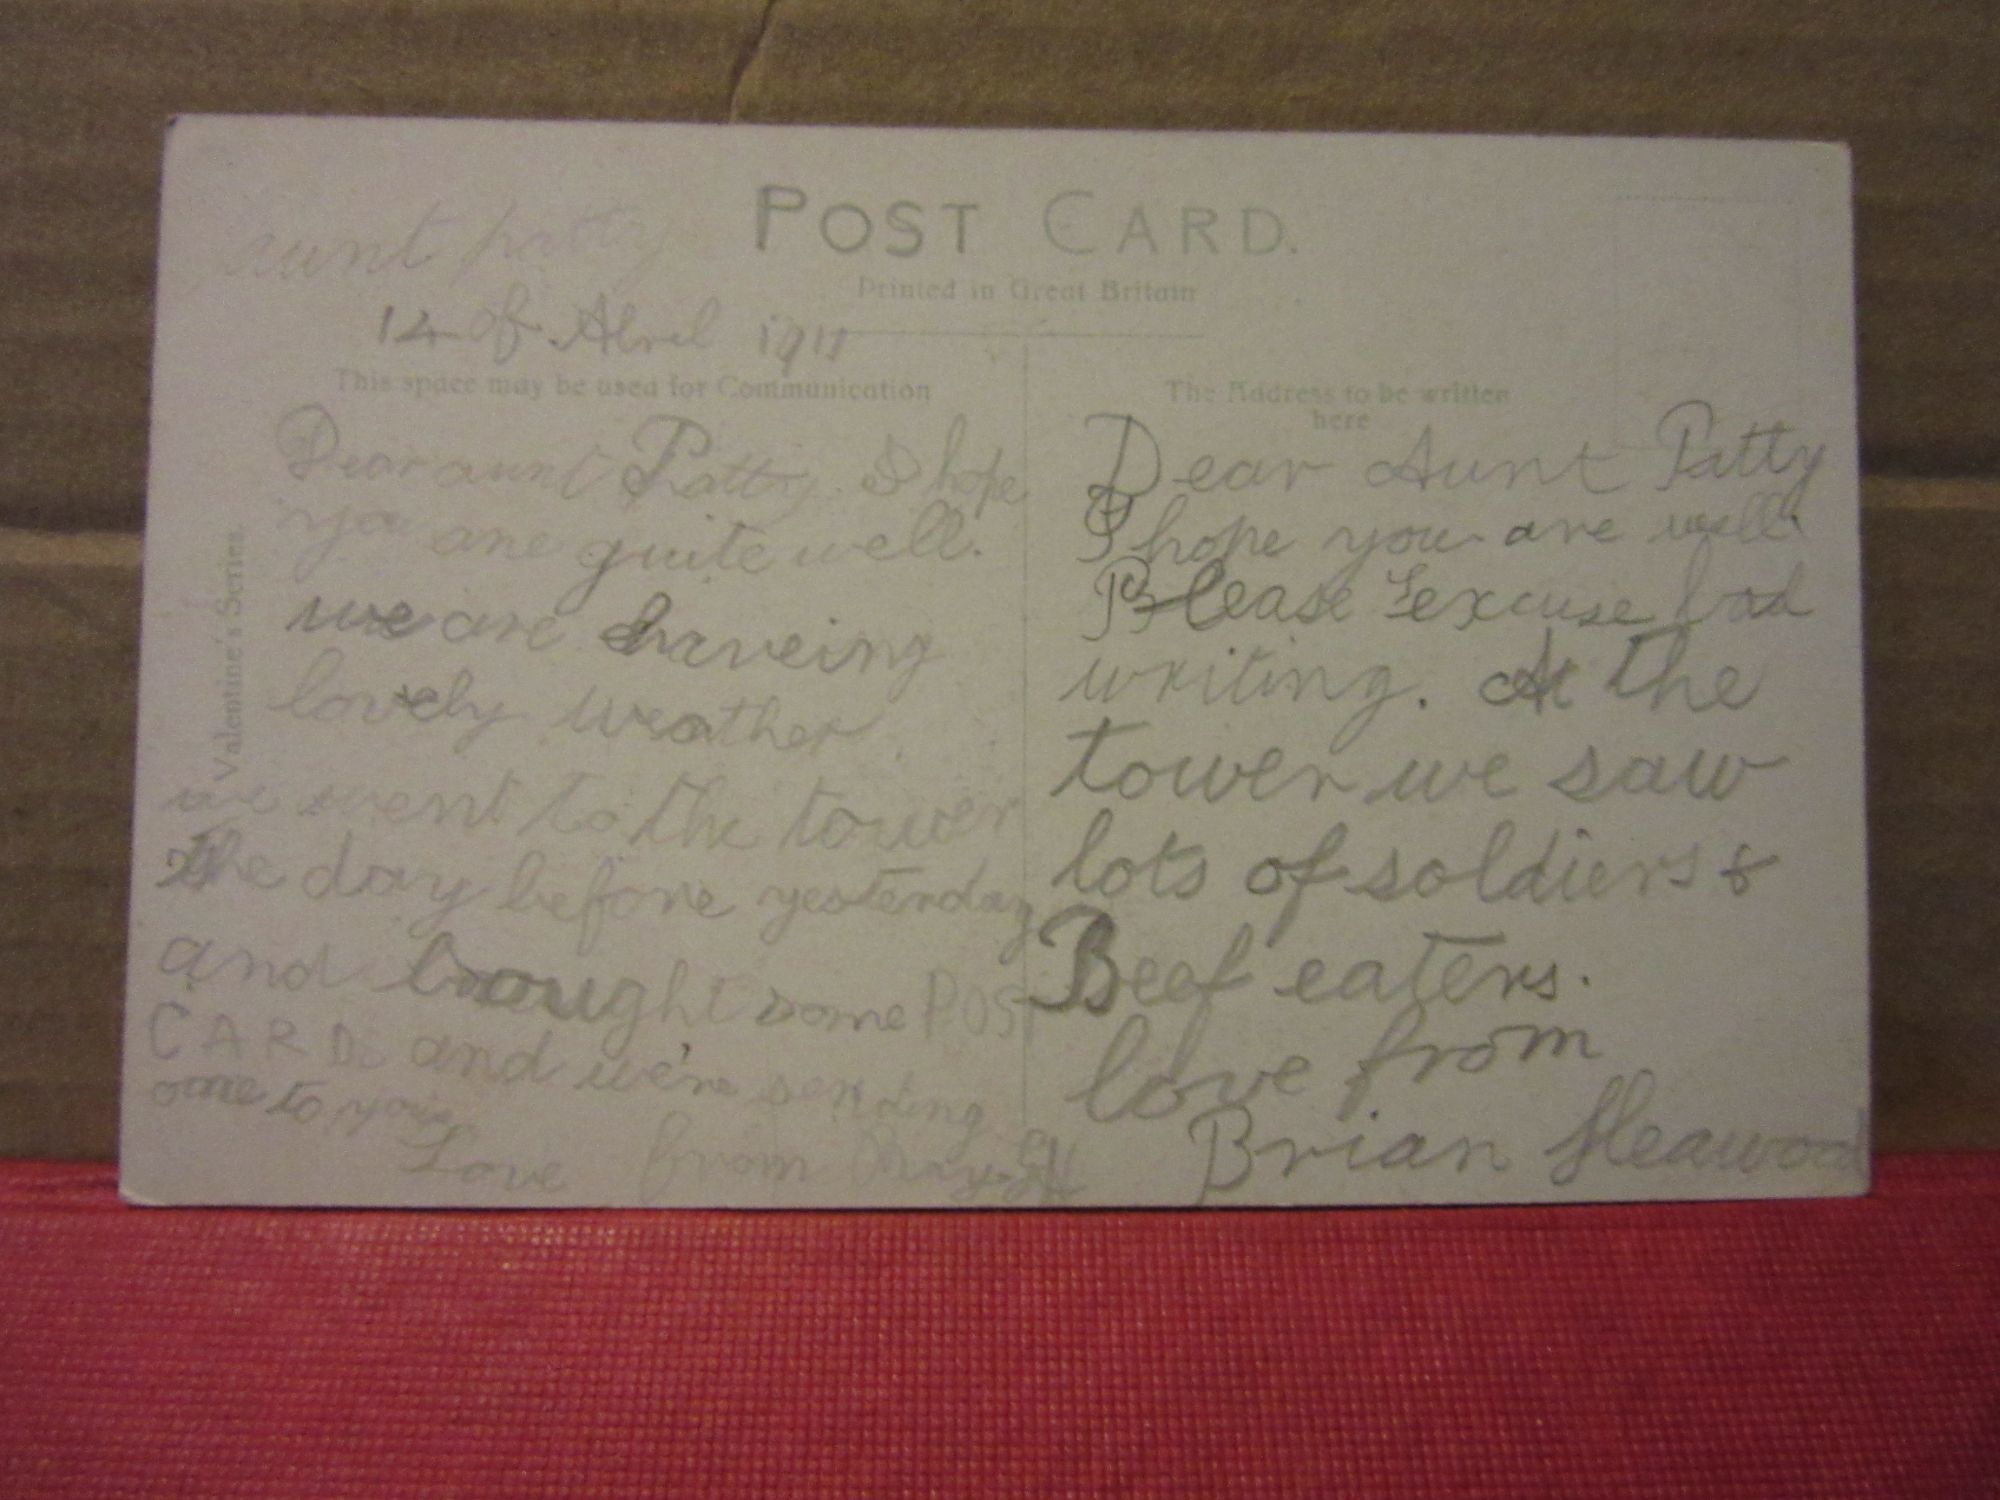 POST CARD.
Printed in Great Britain
aunt patty
14 of Abril 1911
This space may be used for Communication
Dear aunt Patty. I hope
you are quite well.
we are haveing
lovely weather.
we went to the tower
the day before yesterday
and brought some POST
CARDs and we're sending
one to you
Love from Ray H
Valentine's Series.
The Address to be written
here
Dear Aunt Patty
I hope you are well.
Please excuse bad
writing. At the
tower we saw
lots of soldiers &
Beef eaters.
love from
Brian Heawood